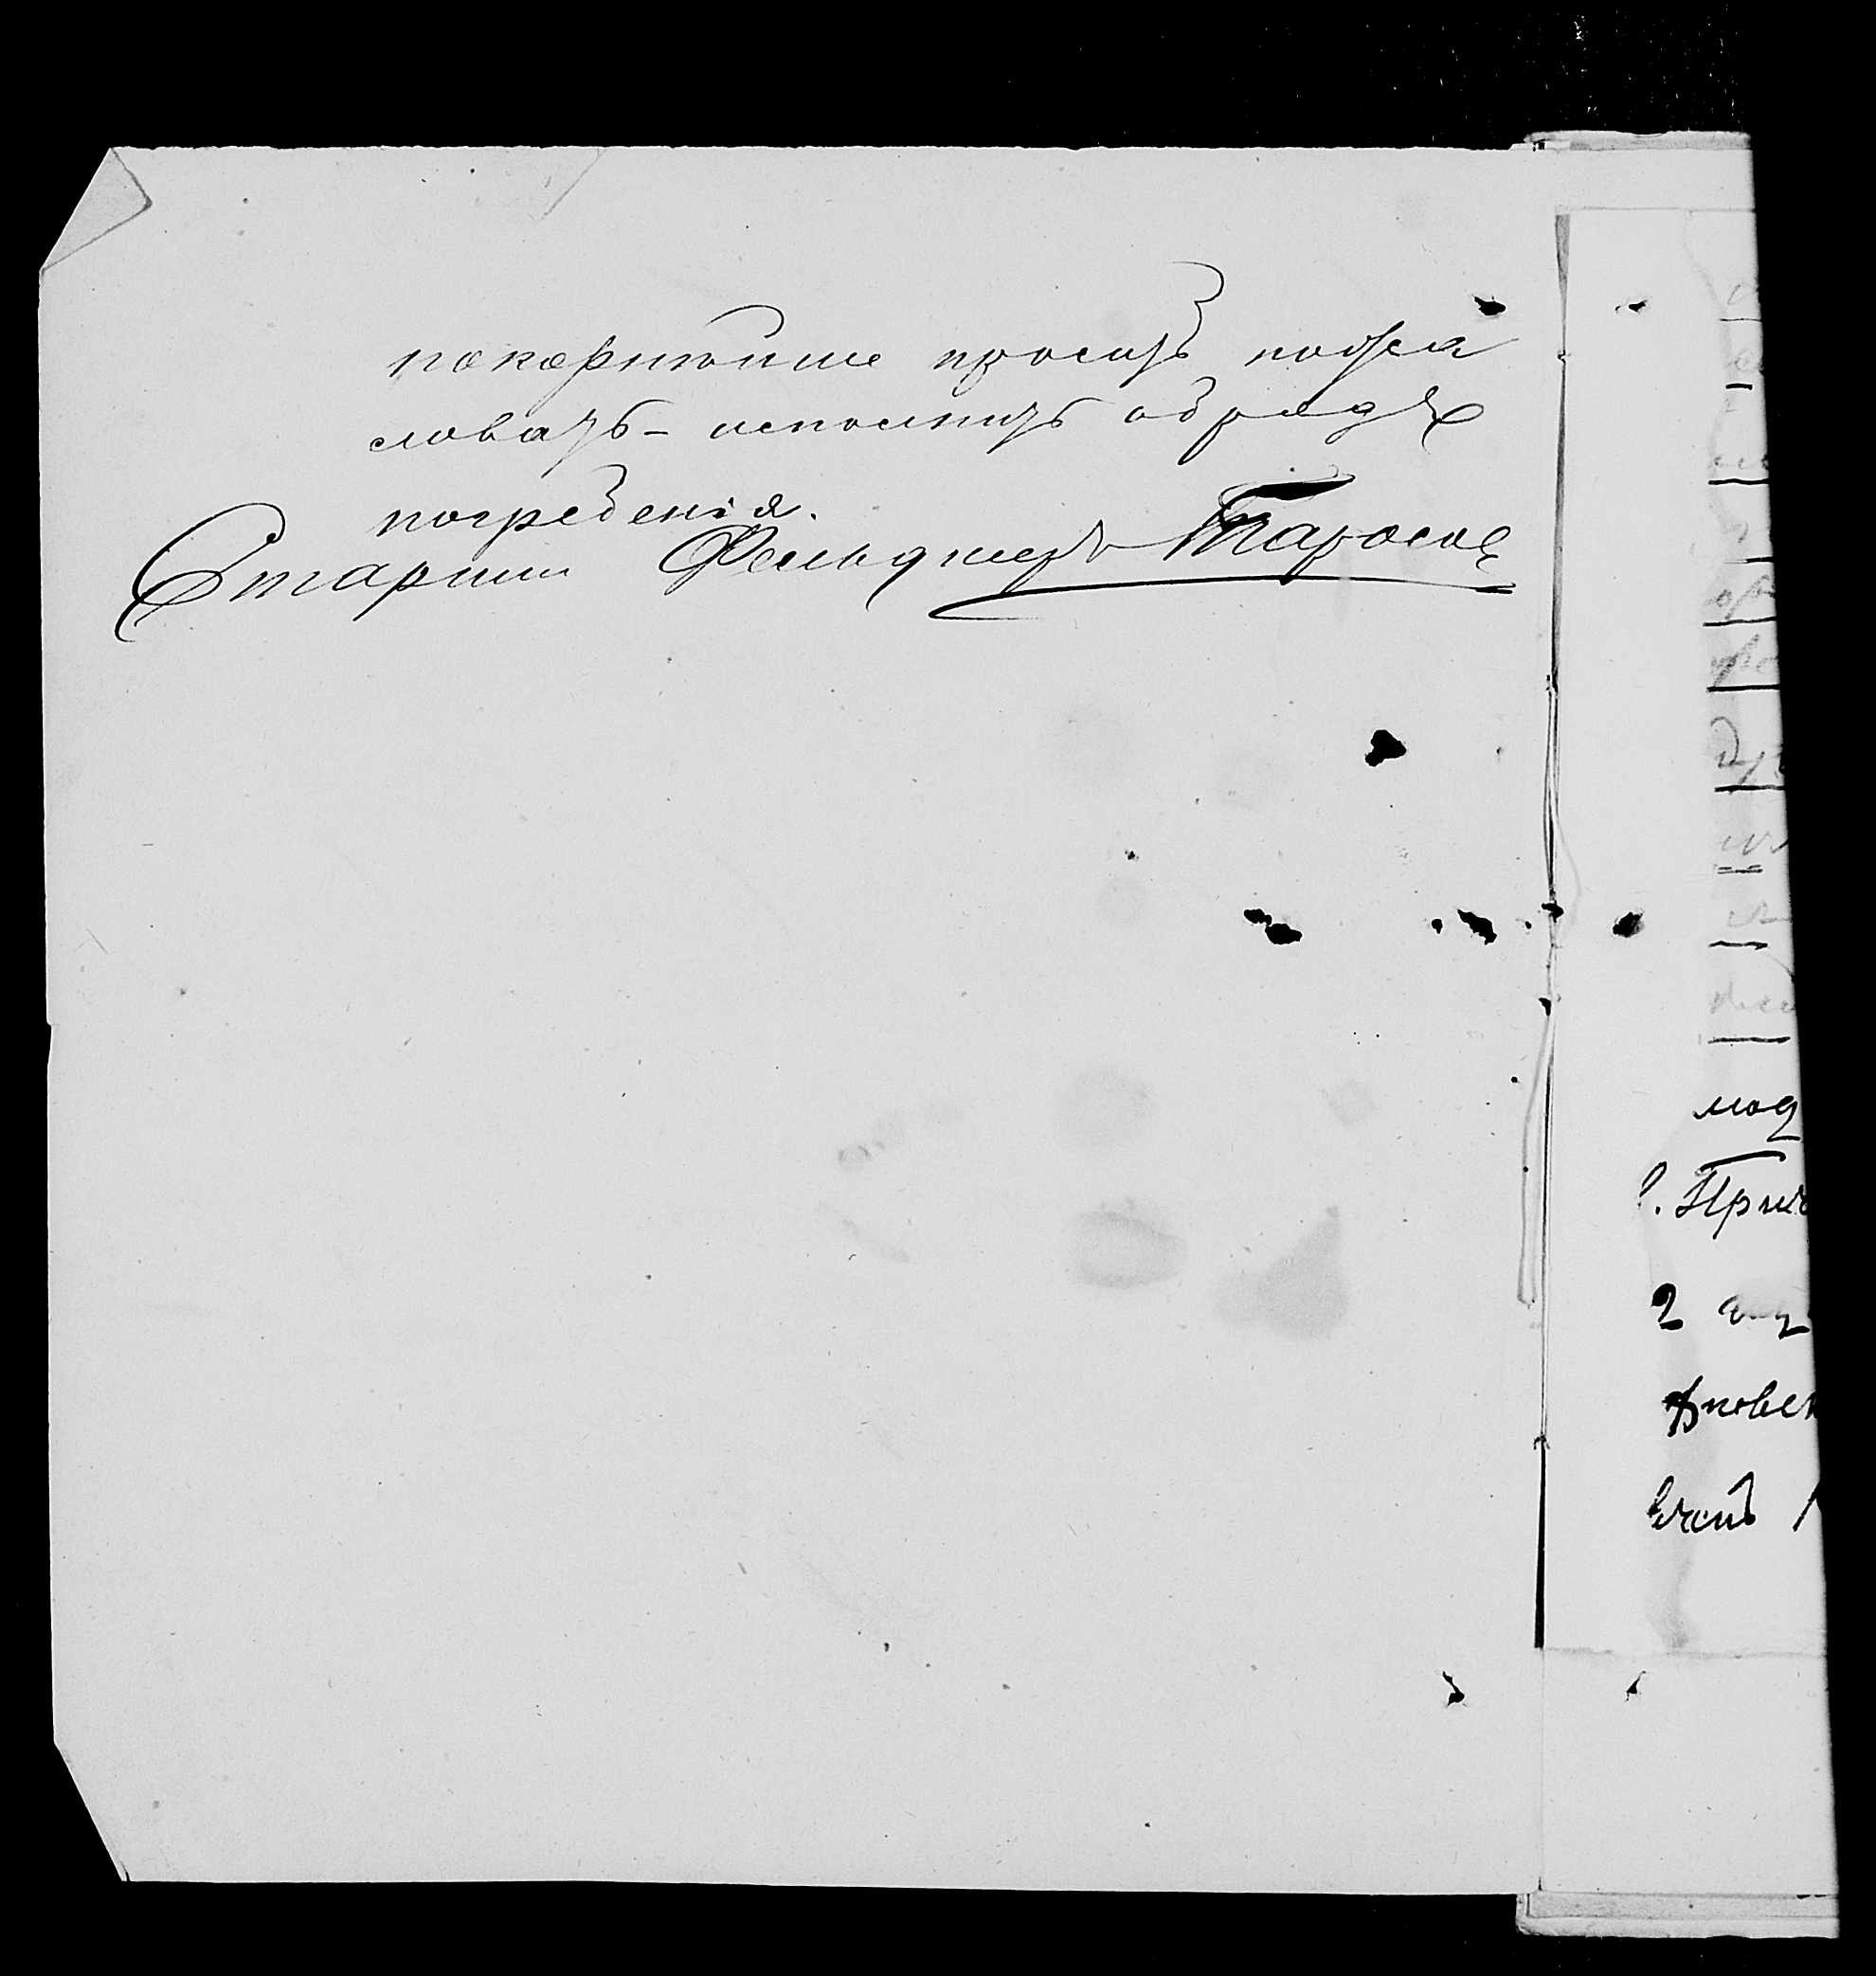 покорнѣйше просить пожа
ловать - исполнить обрядъ
погребенія.
Старший Фельдшеръ Тарасов
мод
Прич
2